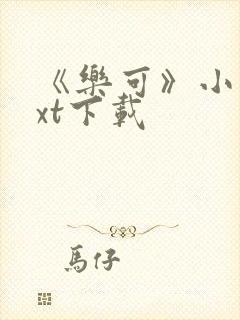 《樂可》小
xt下載
馬仔